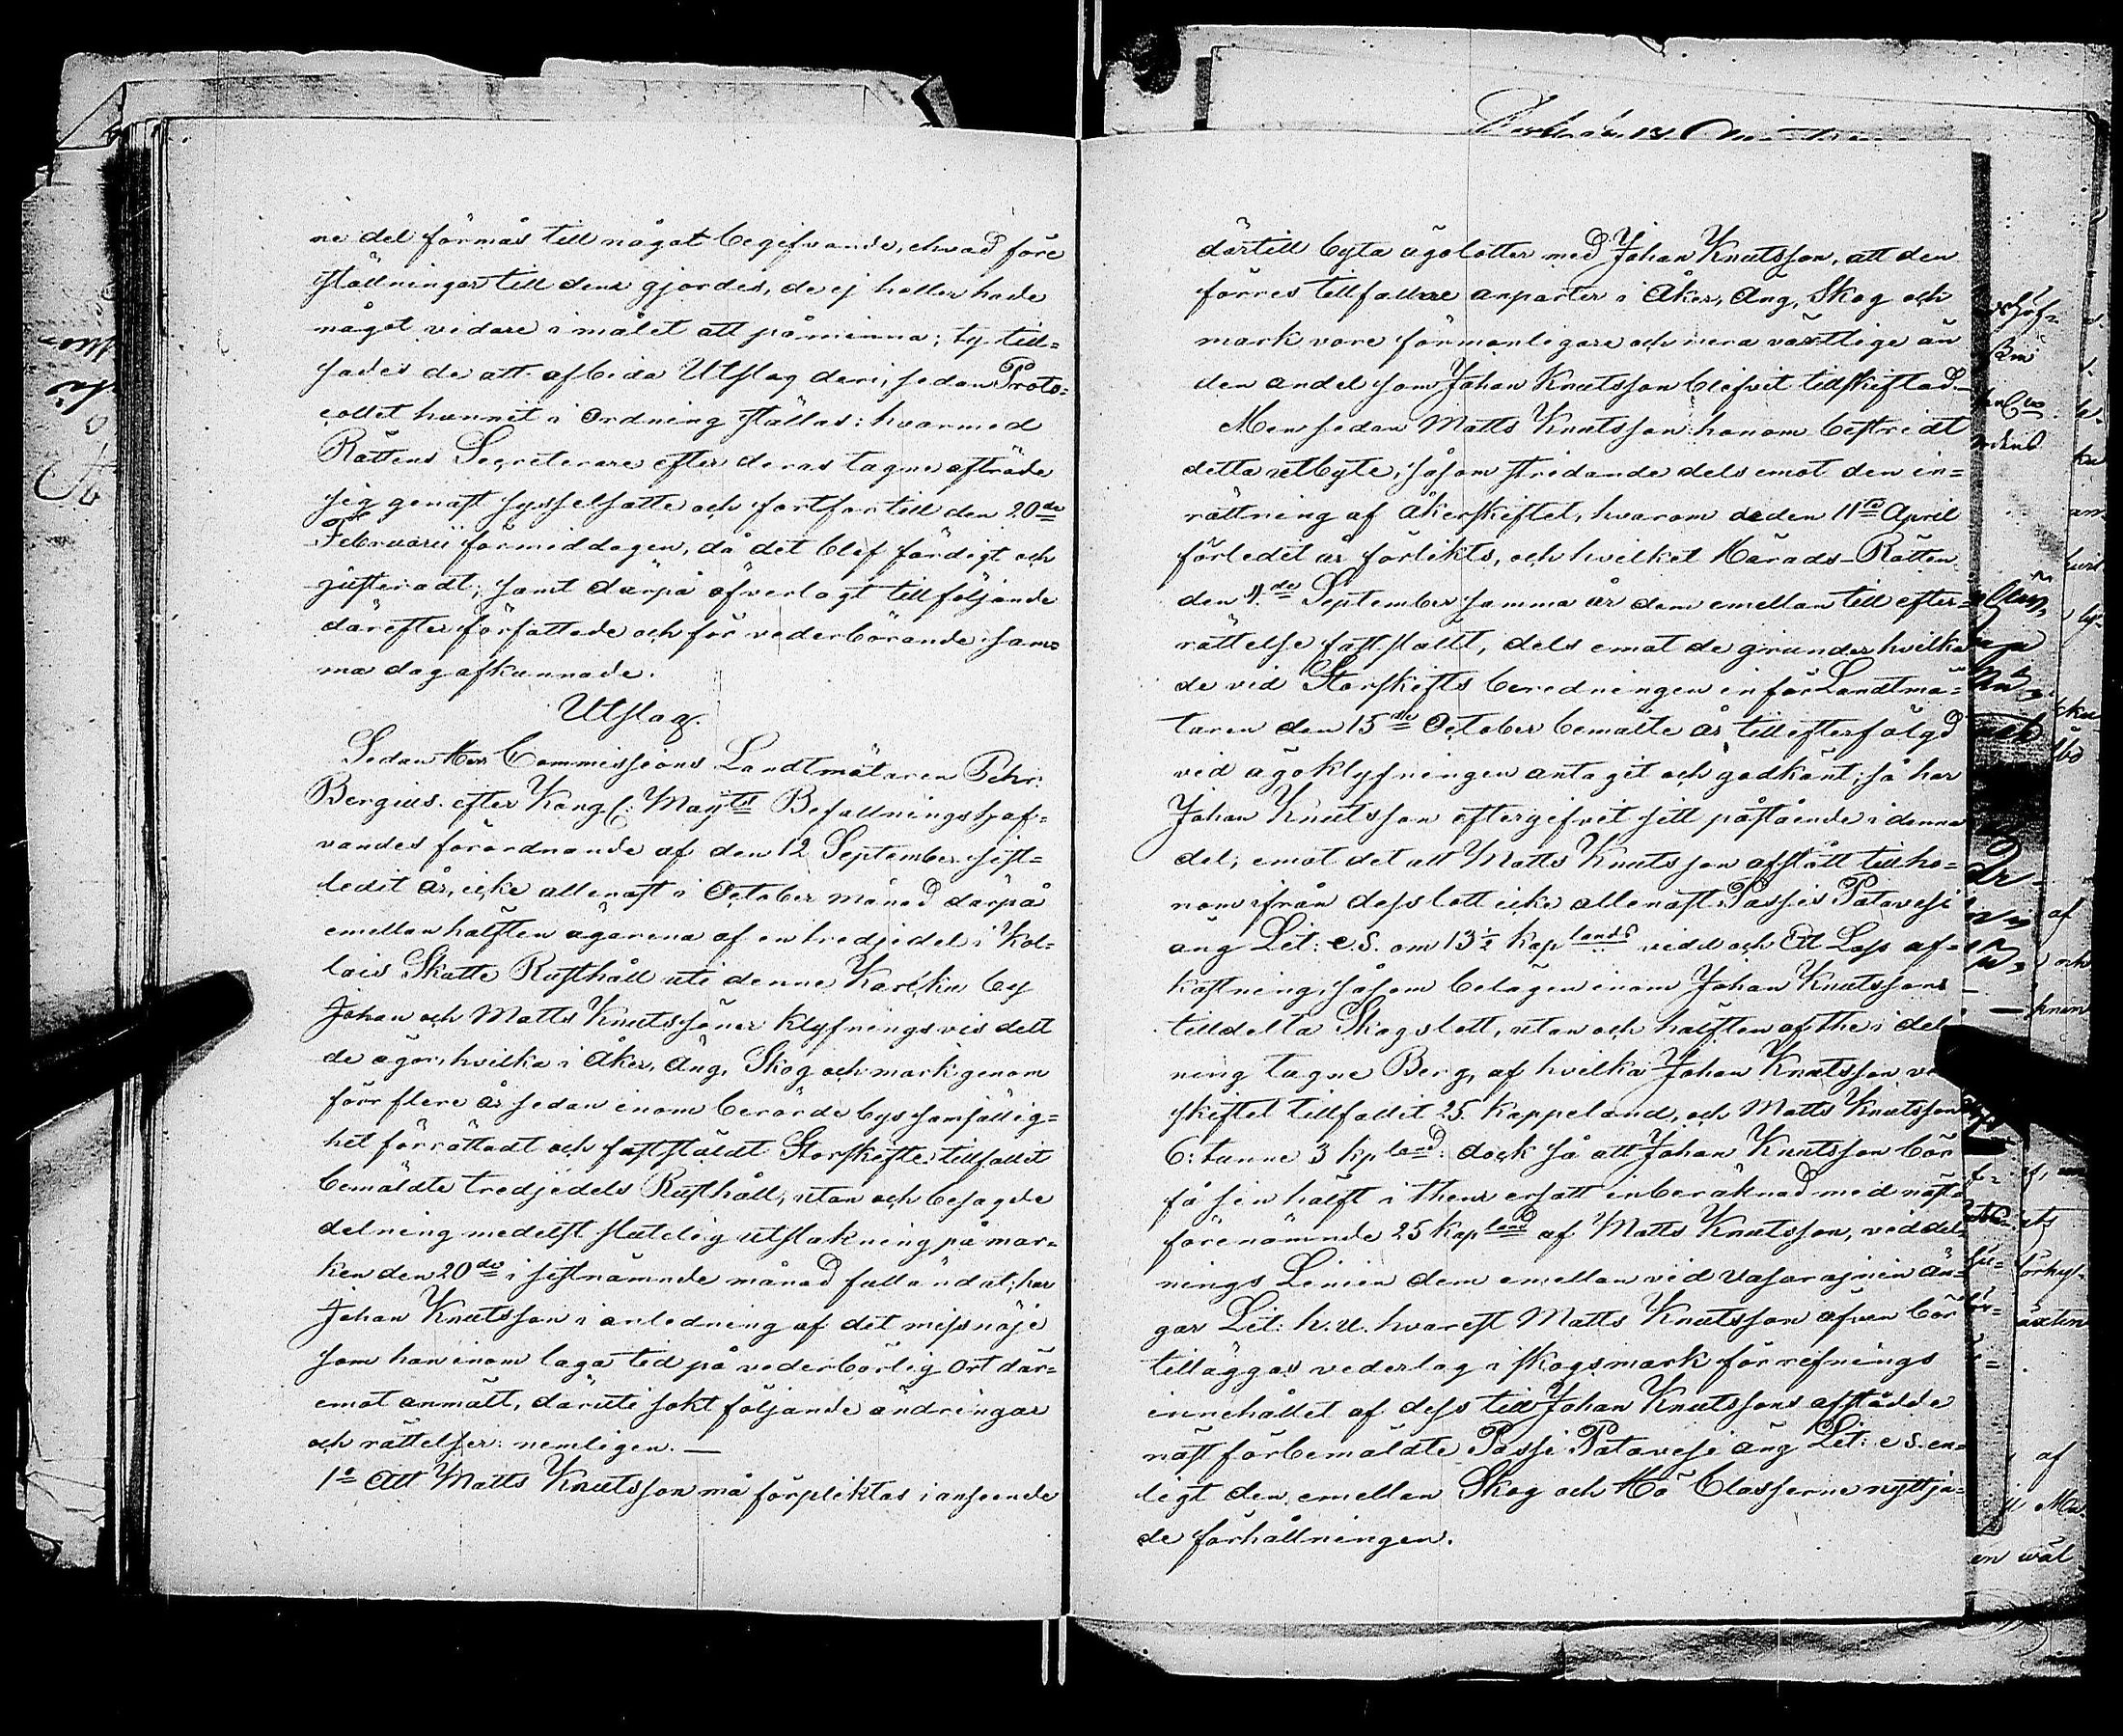 ne del förmås till något begifvande, ehvad före
ställningar till dem gjordes, de ej heller hade
något vidare i målet att påminna; ty till-
sades de att afbida Utslag deri, sedan Proto-
collet hunnit i Ordning ställas: hvarmed
Rättens Secreterare efter deras tagne afträde
sig genast sysselsatte och fortfor till den 20de
Februarii förmiddagen, då det blef färdigt och
justeradt, samt därpå öfverlagt till följande
därefter författade och för vederbörande sam-
ma dag afkunnade.
Utslag.
Sedan Herr Commissions Landtmätaren Pehr
Bergius efter Kongl: Maj:ts Befallningshaf-
vandes förordnande af den 12 September sist-
ledit år, icke allenast i October månad därpå
emellan hälften ägarena af en tredjedel i Kol-
lais Skatte Rusthåll uti denne Karkku by
Johan och Matts Knutssöner klyfningsvis delt
de ägor, hvilka i Åker, Äng, Skog och mark genom
förr flere år sedan inom berörde bys samfällig-
het förrättadt och fastställdt Storskifte tillfallit
bemäldte tredjedels Rusthåll, utan och besagde
delning medelst slutelig utstakning på mar-
ken den 20de i sistnämnde månad fulländat; har
Johan Knutsson i anledning af det missnöje
som han inom laga tid på vederbörlig Ort där-
emot anmält, däruti sökt följande ändringar
och rättelser: nemligen. —
1o Att Matts Knutsson må förpliktas i anseende
därtill byta ägolotter med Johan Knutsson, att den
förres tillfallne anparter i Åker, Äng, Skog och
mark vore förmånligare och mera växtlige än
den andel som Johan Knutsson blifvit tillskiftad.—
Men sedan Matts Knutsson honom bestridt
detta utbyte, såsom stridande dels emot den in-
rättning af åkerskiftet, hvarom de den 11te April
förledit år förlikts, och hvilket Härads-Rätten
den 9.de September samma år dem emellan till efter-
rättelse fastställt, dels emot de grunder hvilka
de vid Storskifts beredningen inför Landtmä-
taren den 15de October bemälte år till efterfölgd
vid ägoklyfningen antagit och godkänt; så har
Johan Knutsson eftergifvet sitt påstående i denna
del, emot det att Matts Knutsson afstått till ho-
nom ifrån dess lott icke allenast Passis Patavesi
äng Lit: e.S. om 13½ kapplands vidd och Ett Lass af-
kastning, såsom belägen inom Johan Knutssons
tilldelta Skogslott, utan och hälften af the i del-
ning tagne Berg, af hvilka Johan Knutsson
skiftet tillfallit 25. Kappeland, och Matts Knutsson
6: tunne 3 kpland: dock så att Johan Knutsson bör
få sin hälft i thens ersatt inberäknad med näst
förenämnde 25 kapland af Matts Knutsson, vid del-
nings Linien dem emellan vid Vasarajnin än-
gar Lit: h.u. hvarest Matts Knutsson äfven bör
tilläggas vederlag i skogsmark för refnings
innehållet af dess till Johan Knutssons afstådde
näst förbemäldte Passi Patavesi äng Lit: e s. en-
ligt den emellan Skog och Hö Classerne nyttja-
de förhållningen.